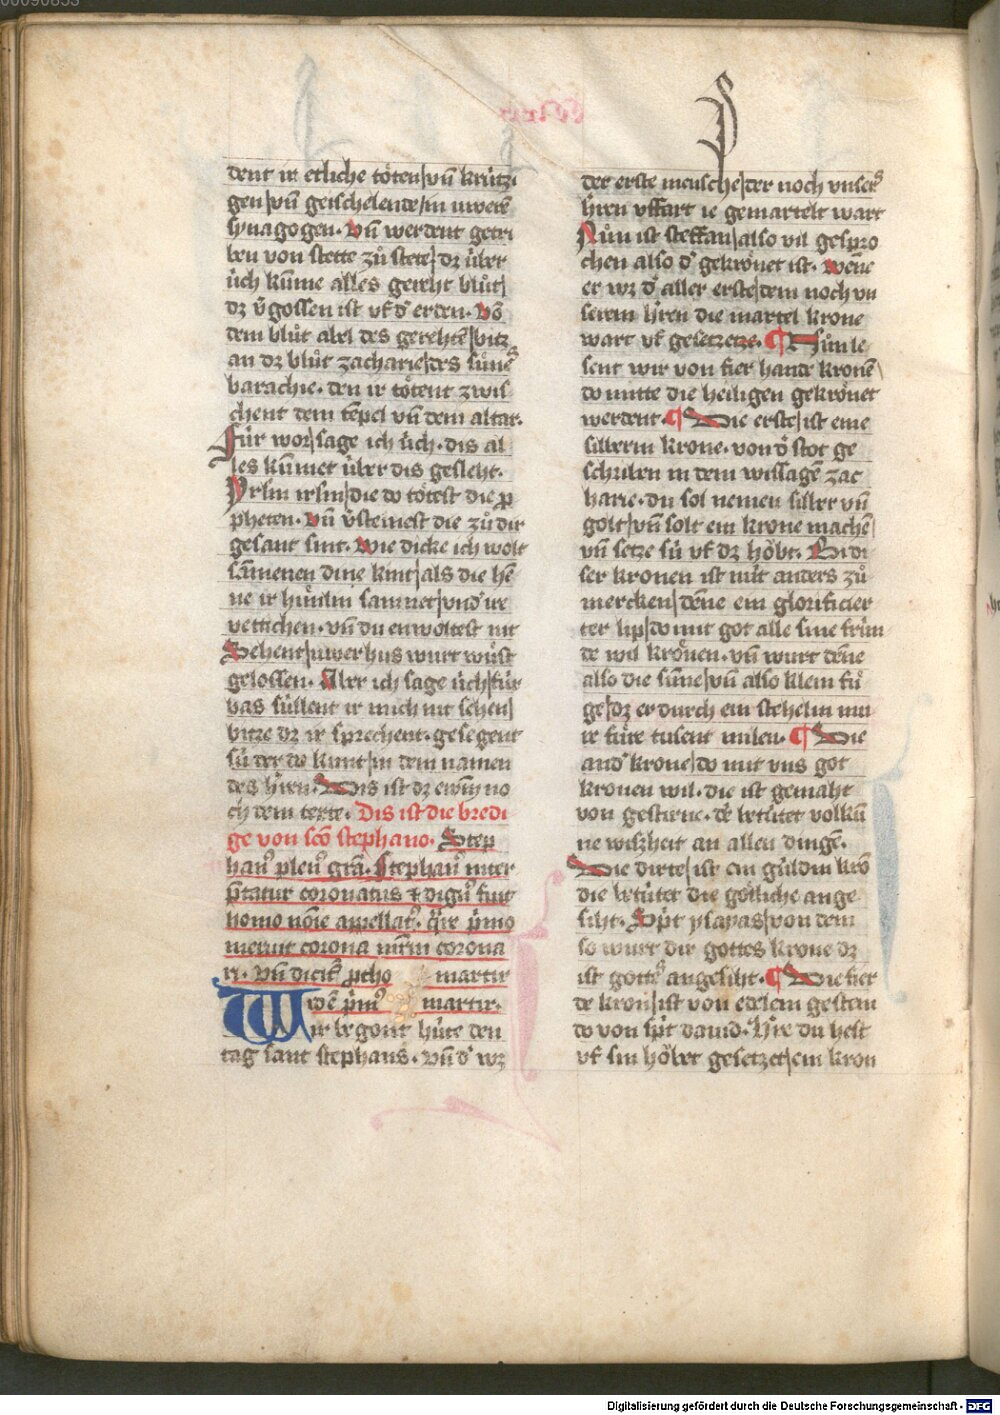 dent ir etliche toͤten / vn̄ krútzi
gen / vn̄ geischelende / in uweren
synagogen. Vn̄ werdent getri
ben von stette zuͦ stete / dz úber
úch kum̄e alles gereht bluͦt /
dz v̓gossen ist vf d̓ erden. Vō
dem bluͦt abel des gerehtē / bitz
an dz bluͦt zacharie / des súnes
barachie. den ir toͤtent zwis
chent dem tēpel vn̄ dem altar.
Fúr wor / sage ich úch. dis al
les kum̄et úber dis gesleht.
Yrlm̄ irlm̄ / die do toͤtest die ꝓ
pheten. Vn̄ v̓steinest die zuͦ dir
gesant sint. Wie dicke ich wolt
sam̄enen dine kint / als die hē
ne ir huͤnlin samnet / vnd̓ ire
vettichen. vn̄ du enwoltest nit
Sehent / uwer hus wurt wuͤst
gelossen. Aber ich sage úch / fúr
bas súllent ir mich nit sehen /
bitze dz ir sprechent. gesegent
sú der do kunt / in dem namen
des h̓ren. Dis ist dz ewm̄ no
ch dem texte. Dis ist die bredi
ge von scō stephano. Step
han⁹ plen⁹ grā. Stephan⁹ inter
p̄tatur coronatus & dign⁹ fuit
homo nōie appellat⁹. q̄re p̄mo
meruit corona mr̄m corona
ri. vn̄ dicit᷑ ꝓtho martir
id ē p̄m⁹ martir.
Wir begont húte den
tag sant stephans. vn̄ d̓ wz
der erste mensche / der noch vnsers
h̓ren vffart ie gemartelt wart
Nuͦn ist steffan / also vil gespro
chen also d̓ gekroͤnet ist. wēne
er wz d̓ aller erste / dem noch vn
serem h̓ren die martel krone
wart vf gesetzetze. ¶ Nuͦn le
sent wir von fier hande kronē
do mitte die heiligen gekroͤnet
werdent. ¶ Die erste / ist eine
silberin krone. von d̓ stot ge
schriben in dem wissagē zac
harie. du sol nemen silber vn̄
golt / vn̄ solt ein krone machē /
vn̄ setze sú vf dz hoͤbt. Bi di
ser kronen ist nút anders zuͦ
mercken / dēne ein glorificier
ter lip / do mit got alle sine frún
de wil kroͤnen. vn̄ wurt dēne
also die sūne / vn̄ also klein fuͤ
ge / dz er durch ein stehelin mu
re fuͤre tusent milen. ¶ Die
and̓ krone / do mit vns got
kronen wil. die ist gemaht
von gestirne. dē betútet volkū
ne wiszheit an allen dingē.
Die dirte / ist ein gúldin krō
die betútet die goͤtliche ange
siht. Sp̓t ysayas / von dem
so wurt dir gottes krone dz
ist gottes angesiht. ¶ Die fier
de kron / ist von edelem gestein
do von sp̓t dauid. H̓re du hest
vf sin hoͤbet gesetzet / ein kron
Digitalisierung gefördert durch die Deutsche Forschungsgemeinschaft - DFG